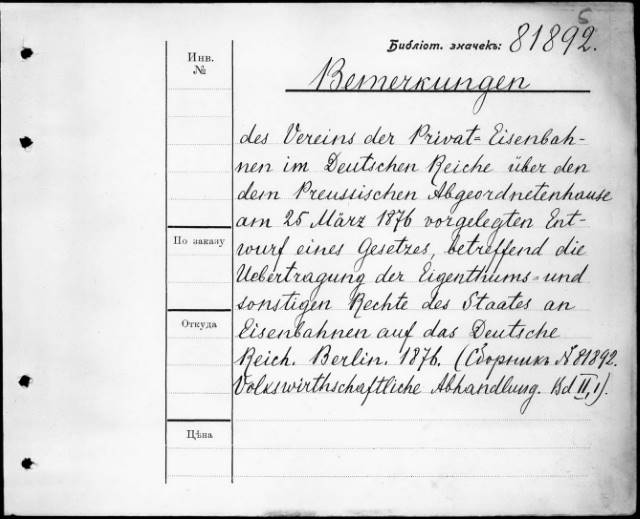 5
Библіот. значекъ: 81892.
Инв.
№
Bemerkungen
des Vereins der Privat=Eisenbah-
nen im Deutschen Reiche über den
dem Preussischen Abgeordnetenhause
am 25 März 1876 vorgelegten Ent-
wurf eines Gesetzes, betreffend die
По заказу
Uebertragung der Eigenthums=und
sonstigen Rechte des Staates an
Откуда
Eisenbahnen auf das Deutsche
Reich. Berlin. 1876. (Сборникъ № 81892.
Volkswirthschaftliche Abhandlung. Bd II,1).
Цѣна